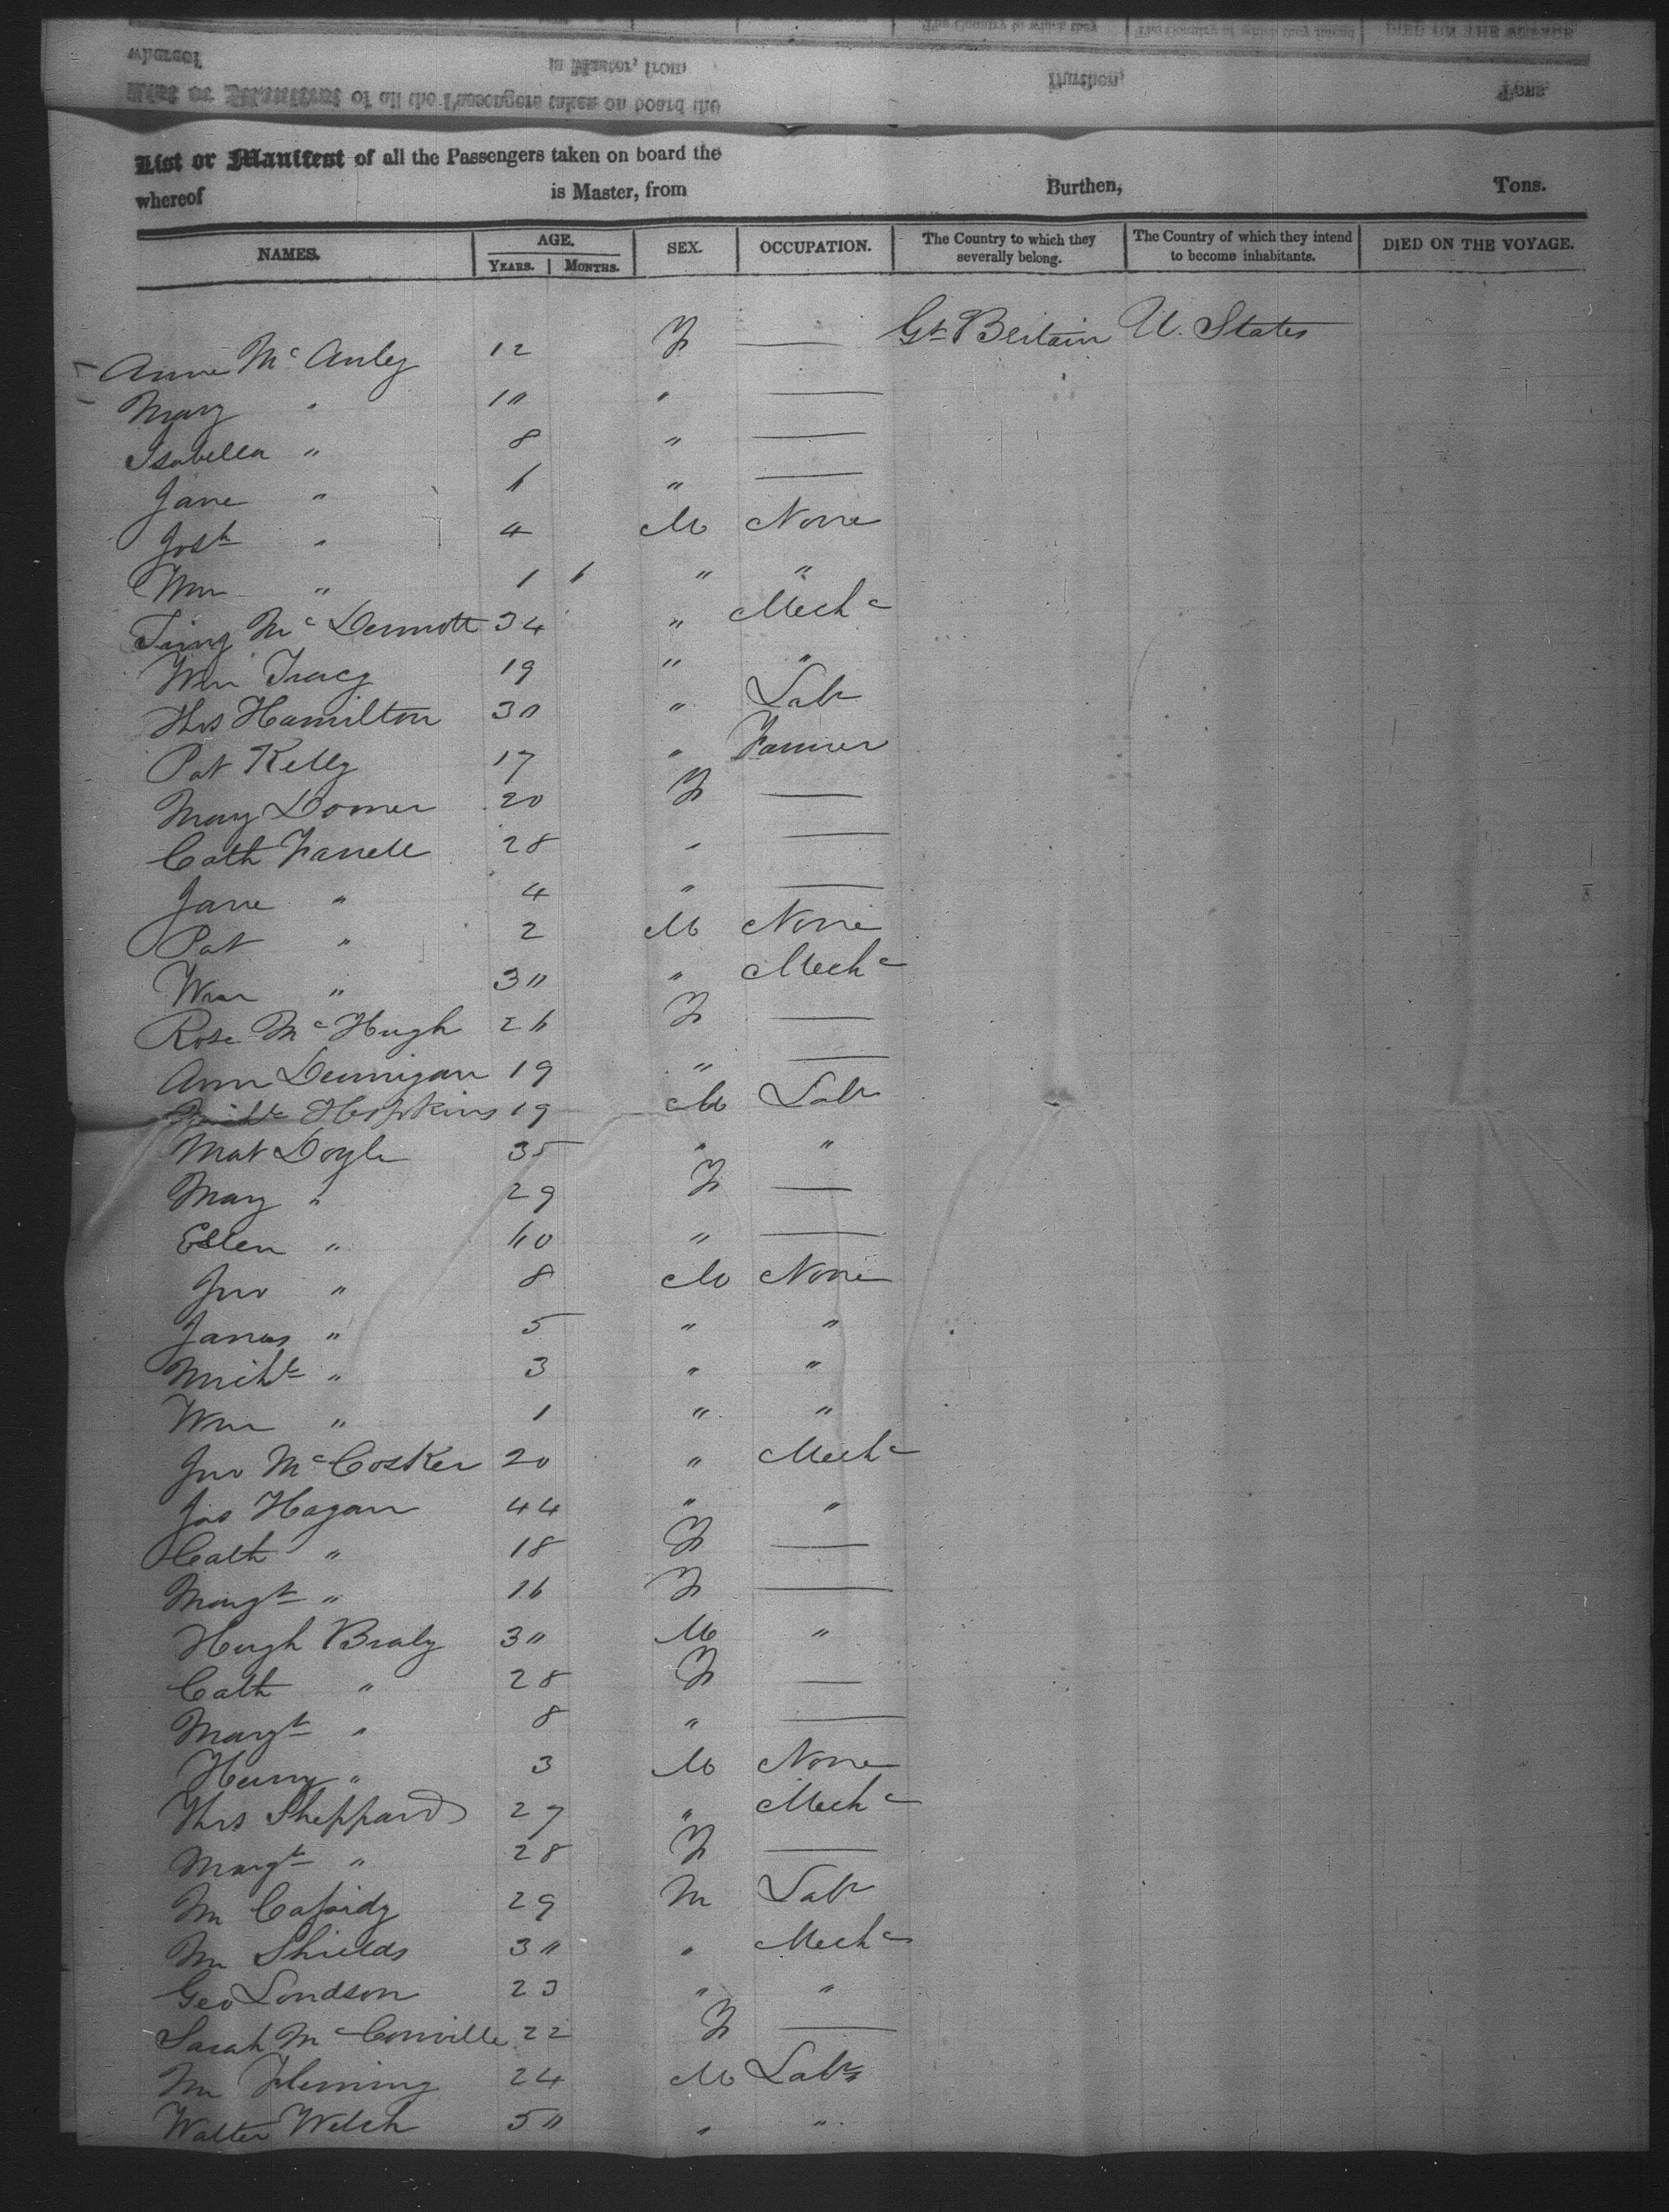 List or Manifest of all the Passengers taken on board the
whereof is Master, from Burthen, Tons.
NAMES. AGE. SEX. OCCUPATION. The Country to which they severally belong. The Country of which they intend to become inhabitants. DIED ON THE VOYAGE.
YEARS. MONTHS.
Anne Mc Auley 12 F — Gt Britain U. States
Mary " 10 " —
Isabella " 8 " —
Jane " 6 " —
Josh " 4 M None
Wm " 1 6 " "
Mc Dermott 34 " Mechc
Wm Tracy 19 " "
Thos Hamilton 30 " Labr
Pat Kelly 17 " Farmer
Mary 20 F —
Cath Farrell 28 " —
Jane " 4 " —
Pat " 2 M None
Wm " 30 " Mechc
Rose Mc Hugh 26 F —
Ann Dunnigan 19 " —
Michl Hopkins 19 M Labr
Mat Doyle 35 " "
Mary " 29 F —
Ellen " 60 " —
Jno " 8 M None
James " 5 " "
Michl " 3 " "
Wm " 1 " "
Jno Mc Cosker 20 " Mechc
Jas Hagan 44 " "
Cath " 18 F —
Margt " 16 F —
Hugh Braly 30 M "
Cath " 28 F —
Margt " 8 " —
Henry " 3 M None
Thos Sheppard 27 " Mechc
Margt " 28 F —
M Cassidy 29 M Labr
M Shields 30 " Mechc
Geo Londson 23 " "
Sarah Mc Conville 22 F —
M Fleming 24 M Labr
Walter Welch 50 " "